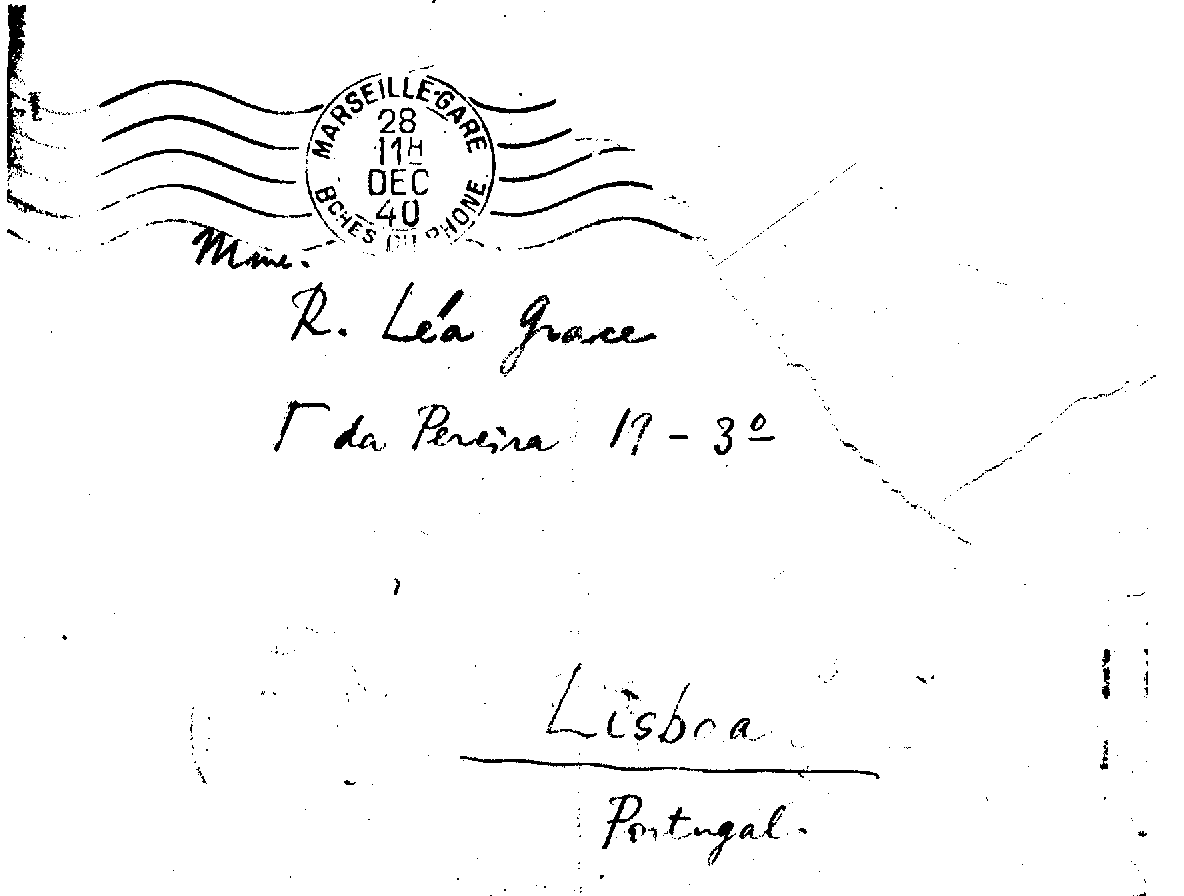 MARSEILLE-GARE
28
11H
DEC
40
BCHES DU RHONE
Mme.
R. Léa Grace
T da Pereira 19 - 3º
Lisboa
Portugal.